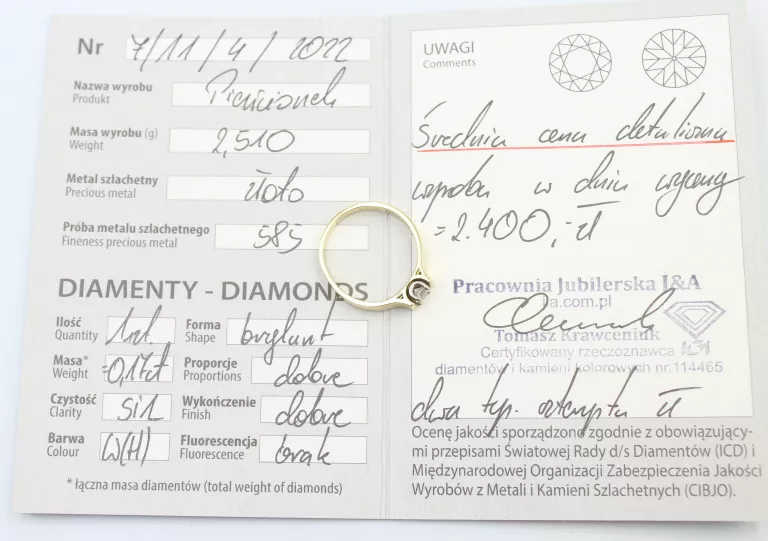 Nr 7/11/4/2022
Nazwa wyrobu
Produkt
Pierścionek
Masa wyrobu (g)
Weight
2,510
Metal szlachetny
Precious metal
złoto
Próba metalu szlachetnego
Fineness precious metal
585
DIAMENTY - DIAMONDS
Ilość
Quantity
1szt.
Forma
Shape
brylant
Masa*
Weight
=0,17ct
Proporcje
Proportions
dobre
Czystość
Clarity
Si1
Wykończenie
Finish
dobre
Barwa
Colour
W(H)
Fluorescencja
Fluorescence
brak
* łączna masa diamentów (total weight of diamonds)
UWAGI
Comments
Średnia cena detaliczna
wyrobu w dniu wyceny
=2.400,-zł
Pracownia Jubilerska J&A
ja.com.pl
Tomasz Krawceniuk
Certyfikowany rzeczoznawca
diamentów i kamieni kolorowych nr 114465
dwa tys. czterysta zł
Ocenę jakości sporządzono zgodnie z obowiązujący-
mi przepisami Światowej Rady d/s Diamentów (ICD) i
Międzynarodowej Organizacji Zabezpieczenia Jakości
Wyrobów z Metali i Kamieni Szlachetnych (CIBJO).